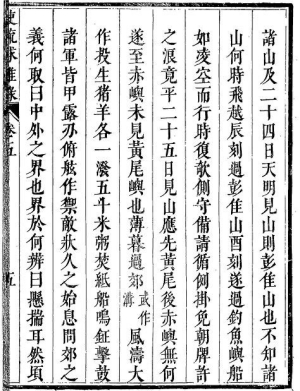 諸山及二十四日天明見山則彭佳山也不知諸
山何時飛越辰刻過彭佳山酉刻遂過釣魚嶼船
如凌空而行時復欹側守備請循例掛免朝牌許
之浪竟平二十五日見山應先黃尾後赤嶼無何
遂至赤嶼未見黃尾嶼也薄暮過郊或作溝風濤大
作投生豬羊各一潑五斗米粥焚紙船鳴鉦擊鼓
諸軍皆甲露刃俯舷作禦敵狀久之始息問郊之
義何取曰中外之界也界於何辨曰懸揣耳然頃
使琉球雜錄
卷五
五